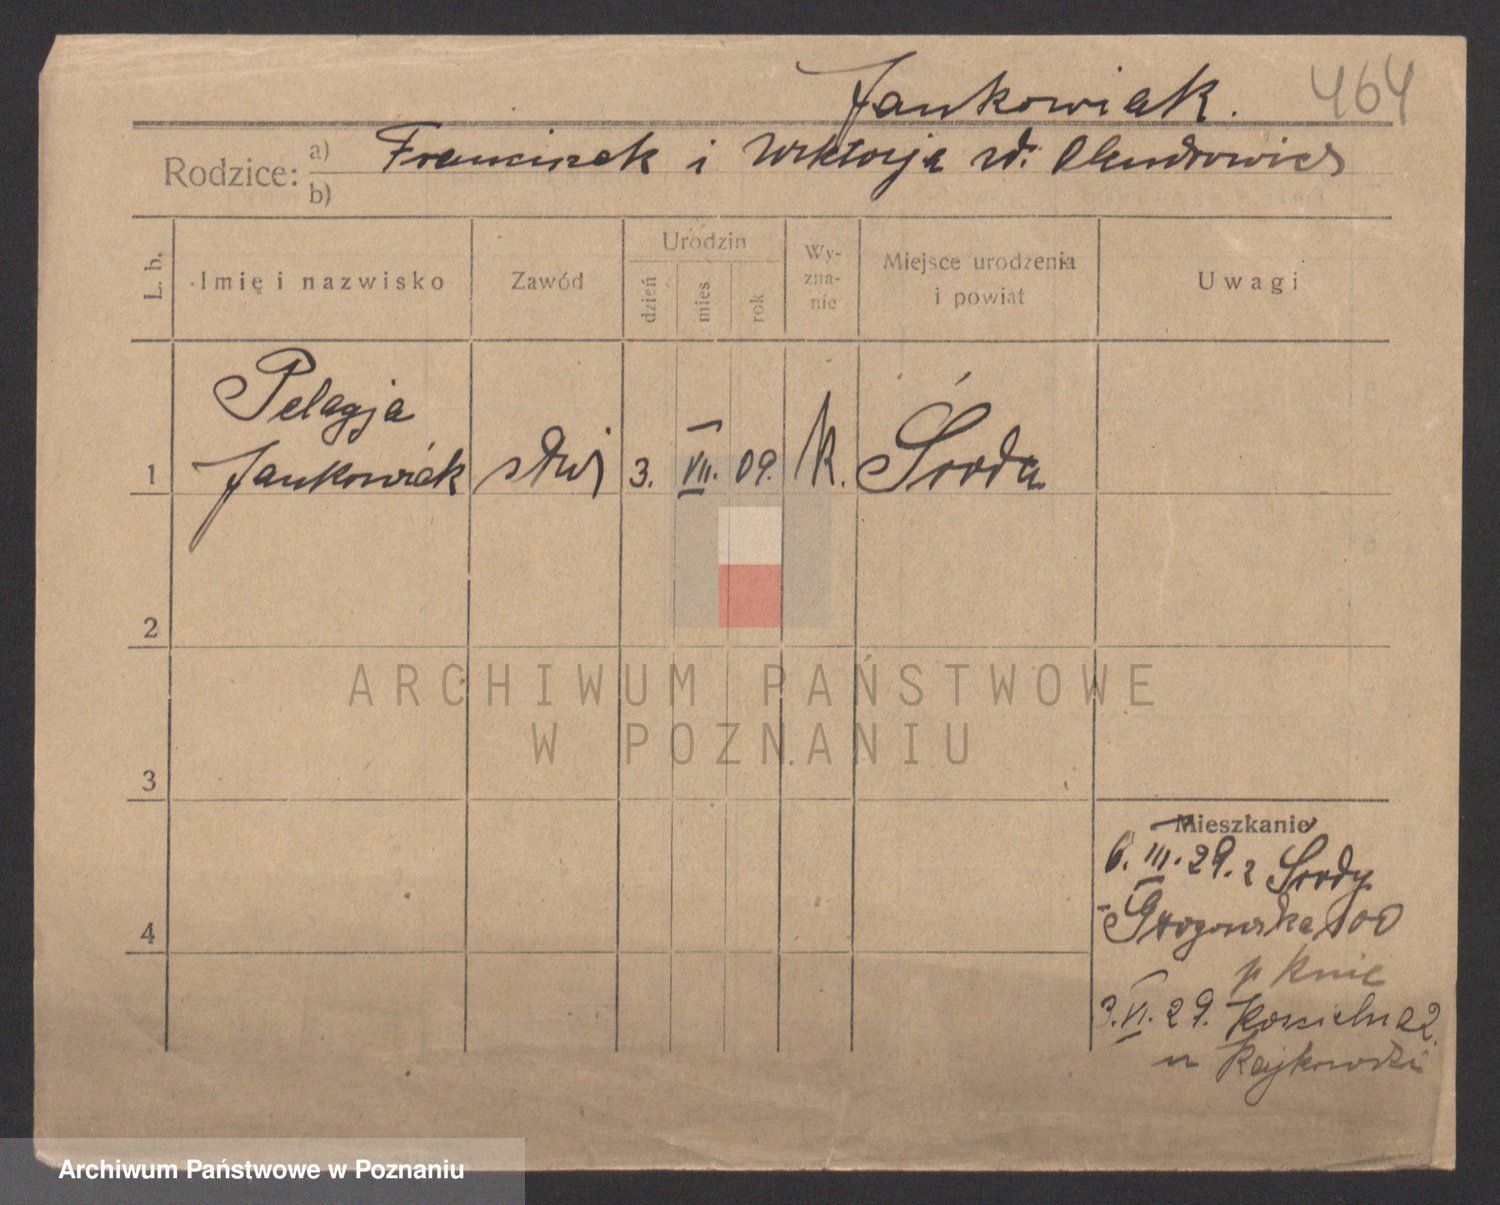 Jankowiak. 464
Rodzice: a) Franciszek i Wiktorja
b)
L. b. Imię i nazwisko Zawód Urodzin dzień mies rok Wy-zna-nie Miejsce urodzenia i powiat Uwagi
Pelagja
1 Jankowiak służ 3. VII. 09. k. Środa
2
3
4
Mieszkanie
6. III. 29. z Środy
100
3. VI. 29. Kościelna 2.
ARCHIWUM PAŃSTWOWE
W POZNANIU
Archiwum Państwowe w Poznaniu